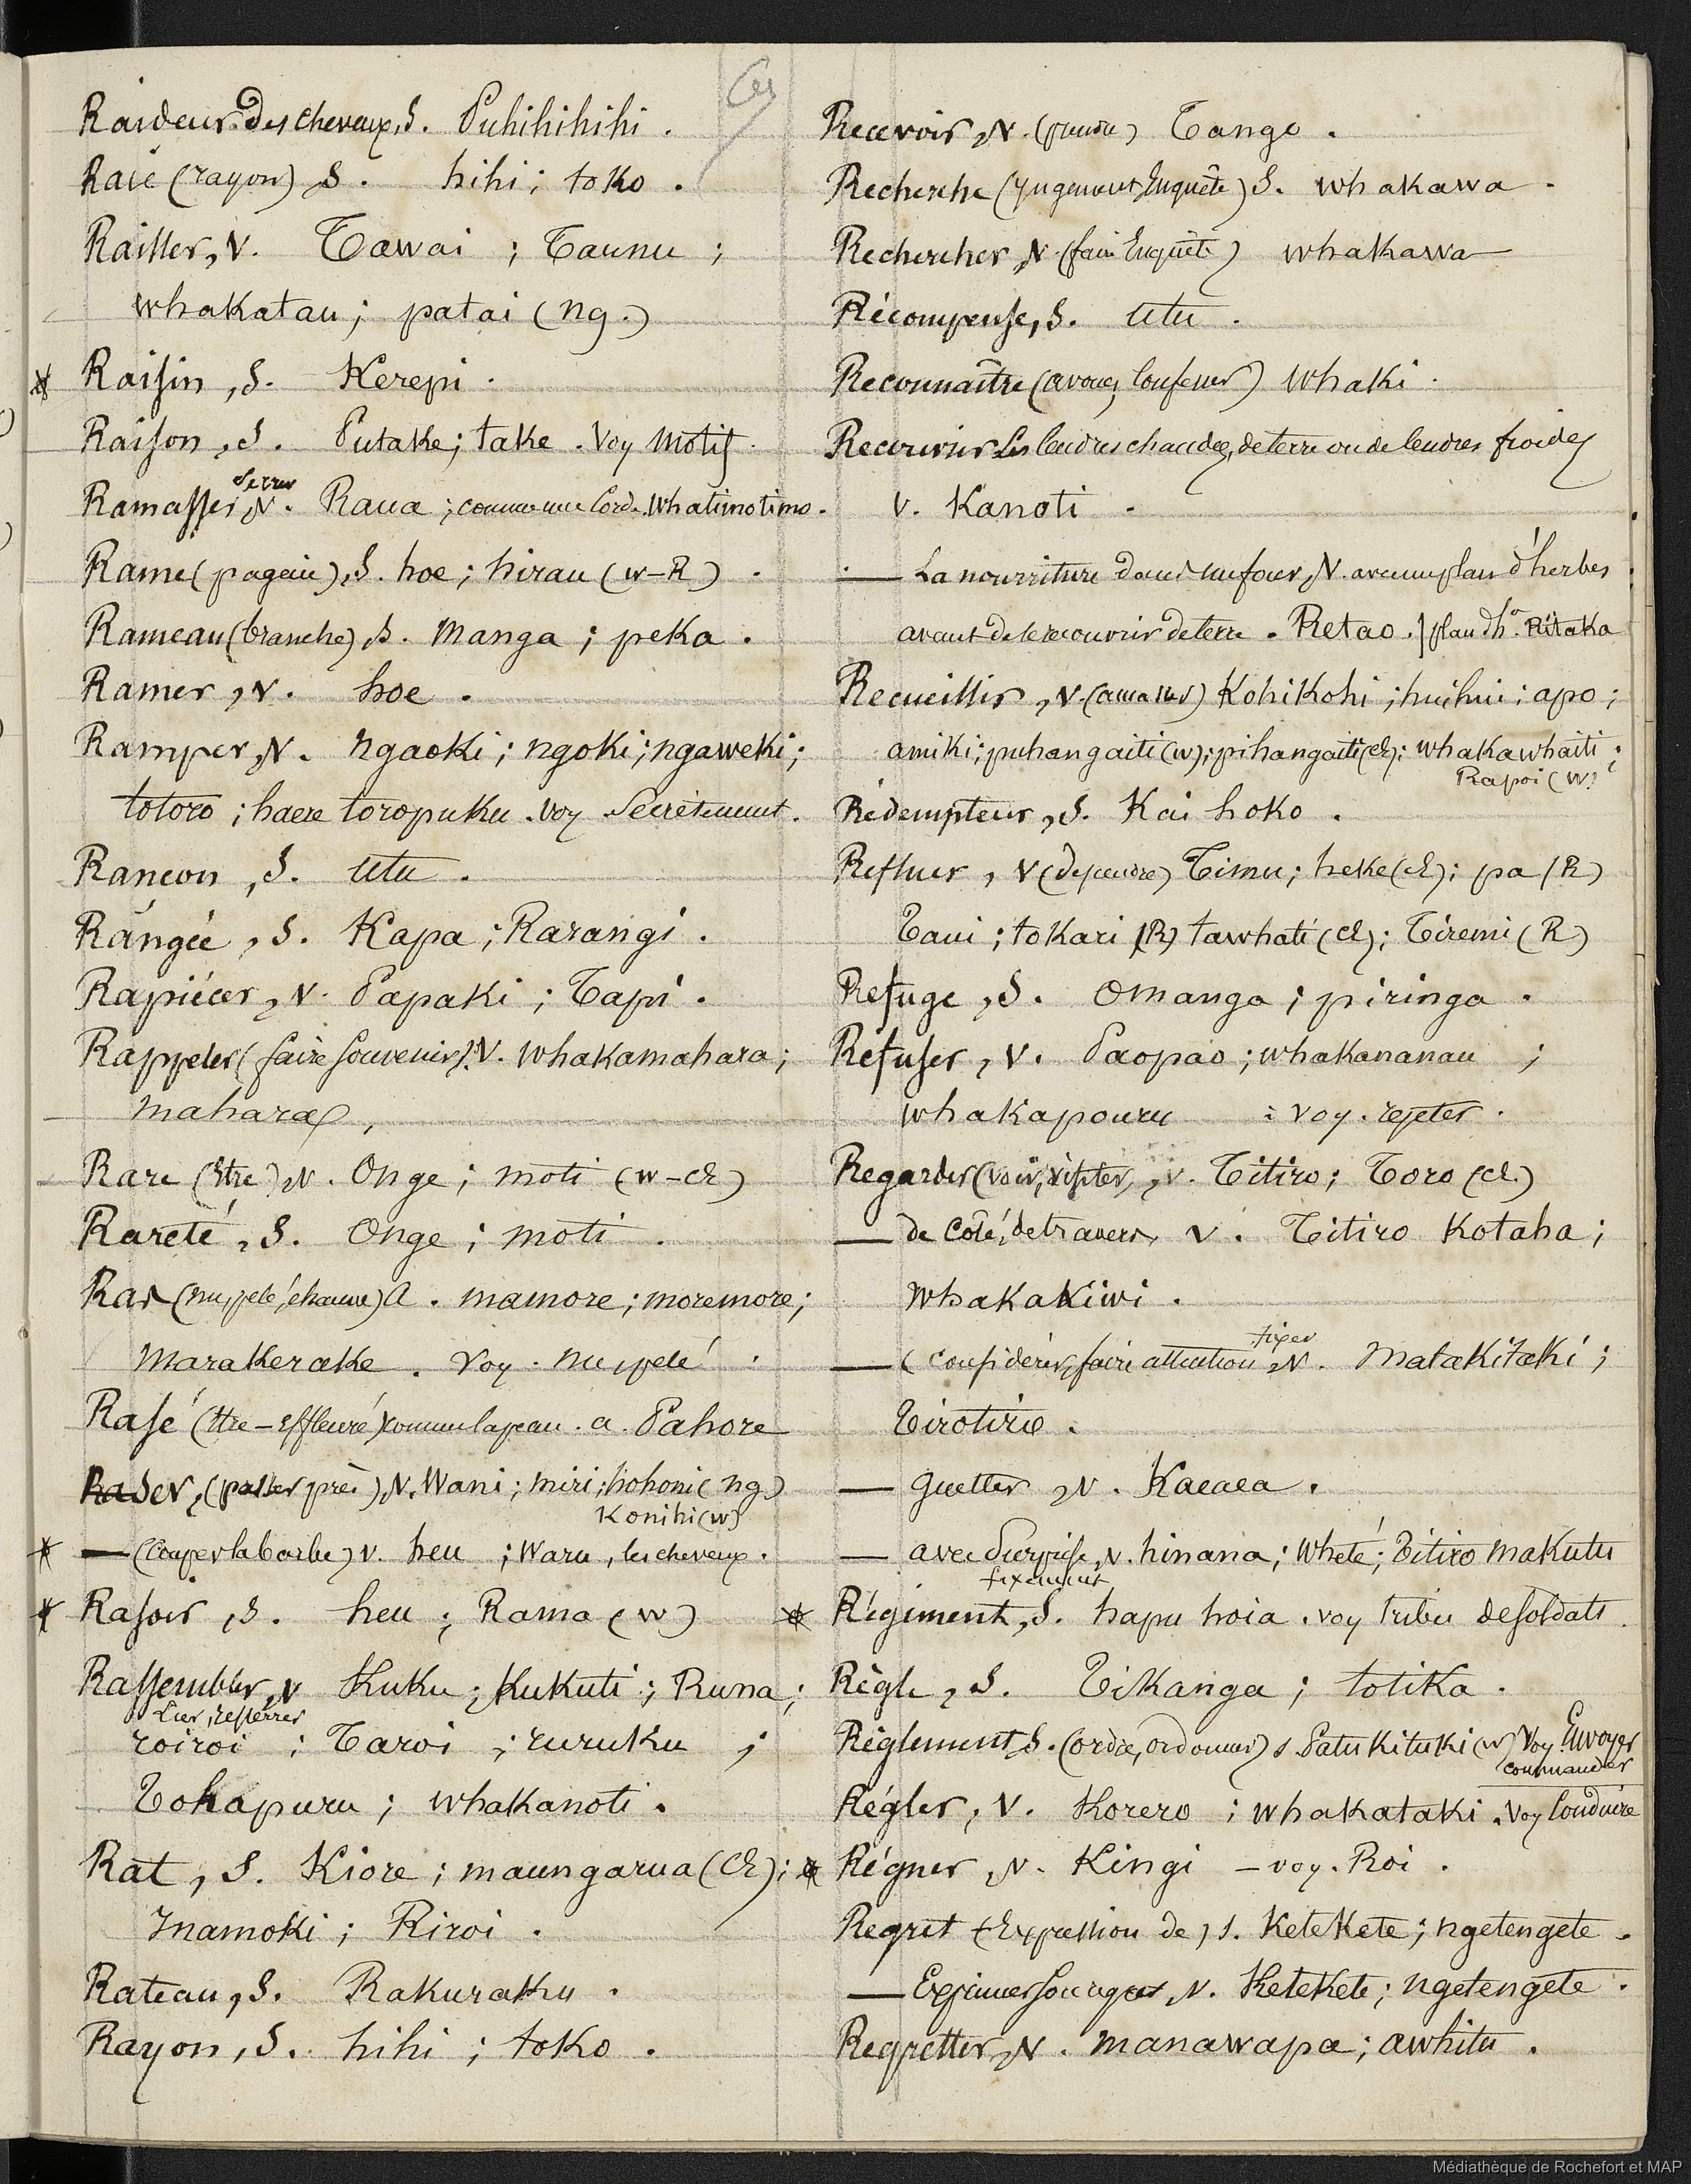 Raideur des cheveux, S. Puhihihihi.
Raie (rayon) S. hihi; toko.
Railler, V. Tawai; Taunu;
whakatau; patai (ng.)
* Raisin, S. Kerepi.
Raison, S. Putake; take. Voy Motif.
serrer
Ramasser, V. Raua; comme une corde. Whatimotimo.
Rame (pagaie), S. hoe; hirau (W-R).
Rameau (branche), S. manga; peka.
Ramer, V. hoe.
Ramper, V. ngaoki; ngoki; ngaweki;
totoro; haere toropuku. voy Secrètement.
Rançon, S. Utu.
Rangée, S. Kapa; Rarangi.
Rapiécer, V. Papaki; Tapi.
Rappeler (faire souvenir) V. whakamahara;
mahara,
Rare (Etre) V. Onge; moti (W-Ch)
Rareté, S. Onge; moti.
Ras (nu, pelé, chauve) a. mamore; moremore;
marakerake. Voy. nu, pelé.
Rasé (Etre – Effleuré) comme la peau. a. Pahore
Raser, (passer près), V. Wani; miri; hohoni (ng)
Konihi (w)
* — (couper la barbe) v. heu; Waru, les cheveux.
* Rasoir, S. heu; Rama (w)
Rassembler, V Kuku; Kukuti; Runa;
Lier, resserrer
roiroi; Taroi; ruruku;
Tokapuru; whakanoti.
Rat, S. Kiore; maungarua (Ch);
Inamoki; Riroi.
Rateau, S. Rakuraku.
Rayon, S. hihi; toko.
Recevoir, V. (prendre) Tango.
Recherche (Jugement, Enquête) S. whakawa.
Rechercher, V. (faire Enquête) whakawa
Récompense, S. Utu.
Reconnaître (avouer, confesser) whaki.
Recouvrir les cendres chaudes, de terre ou de cendres froides
V. Kanoti.
— La nourriture dans un four, V. avec un plan d'herbes
avant de le recouvrir de terre. Retao. | plan d'h. Ritaka
Recueillir, V. (amasser) Kohikohi; huihui; apo;
amiki; puhangaiti (w); pihangaiti (Ch); whakawhaiti;
Rapoi (W)
Rédempteur, S. Kai hoko.
Refluer, V (descendre) Timu; heke (Ch); pa (R)
Taui; tokari (R) tawhati (Ch); Tiremi (R)
Refuge, S. Omanga; piringa.
Refuser, V. Paopao; whakananau;
whakapouru; voy. rejeter.
Regarder (voir, visiter), V. Titiro; Toro (Ch.)
— de côté, de travers, V. Titiro Kotaha;
whakakiwi.
fixer
— (considérer, faire attention, V. Matakitaki;
Tirotiro.
— guetter, V. Kaeaea.
— avec surprise, V. hinana; Whete; Titiro makutu
fixement
* Régiment, S. hapu hoia. voy tribu de soldats.
Règle, S. Tikanga; totika.
Réglement, S. (ordre, ordonner) s Patukituki (w) Voy. Envoyer
commander
Régler, V. Korero; whakataki. Voy Conduire
* Régner, V. Kingi – voy. Roi.
Regret (Expression de) s. Ketekete; ngetengete.
— Exprimer son regret, V. Ketekete; ngetengete.
Regretter, V. manawapa; awhitu.
Médiathèque de Rochefort et MAP